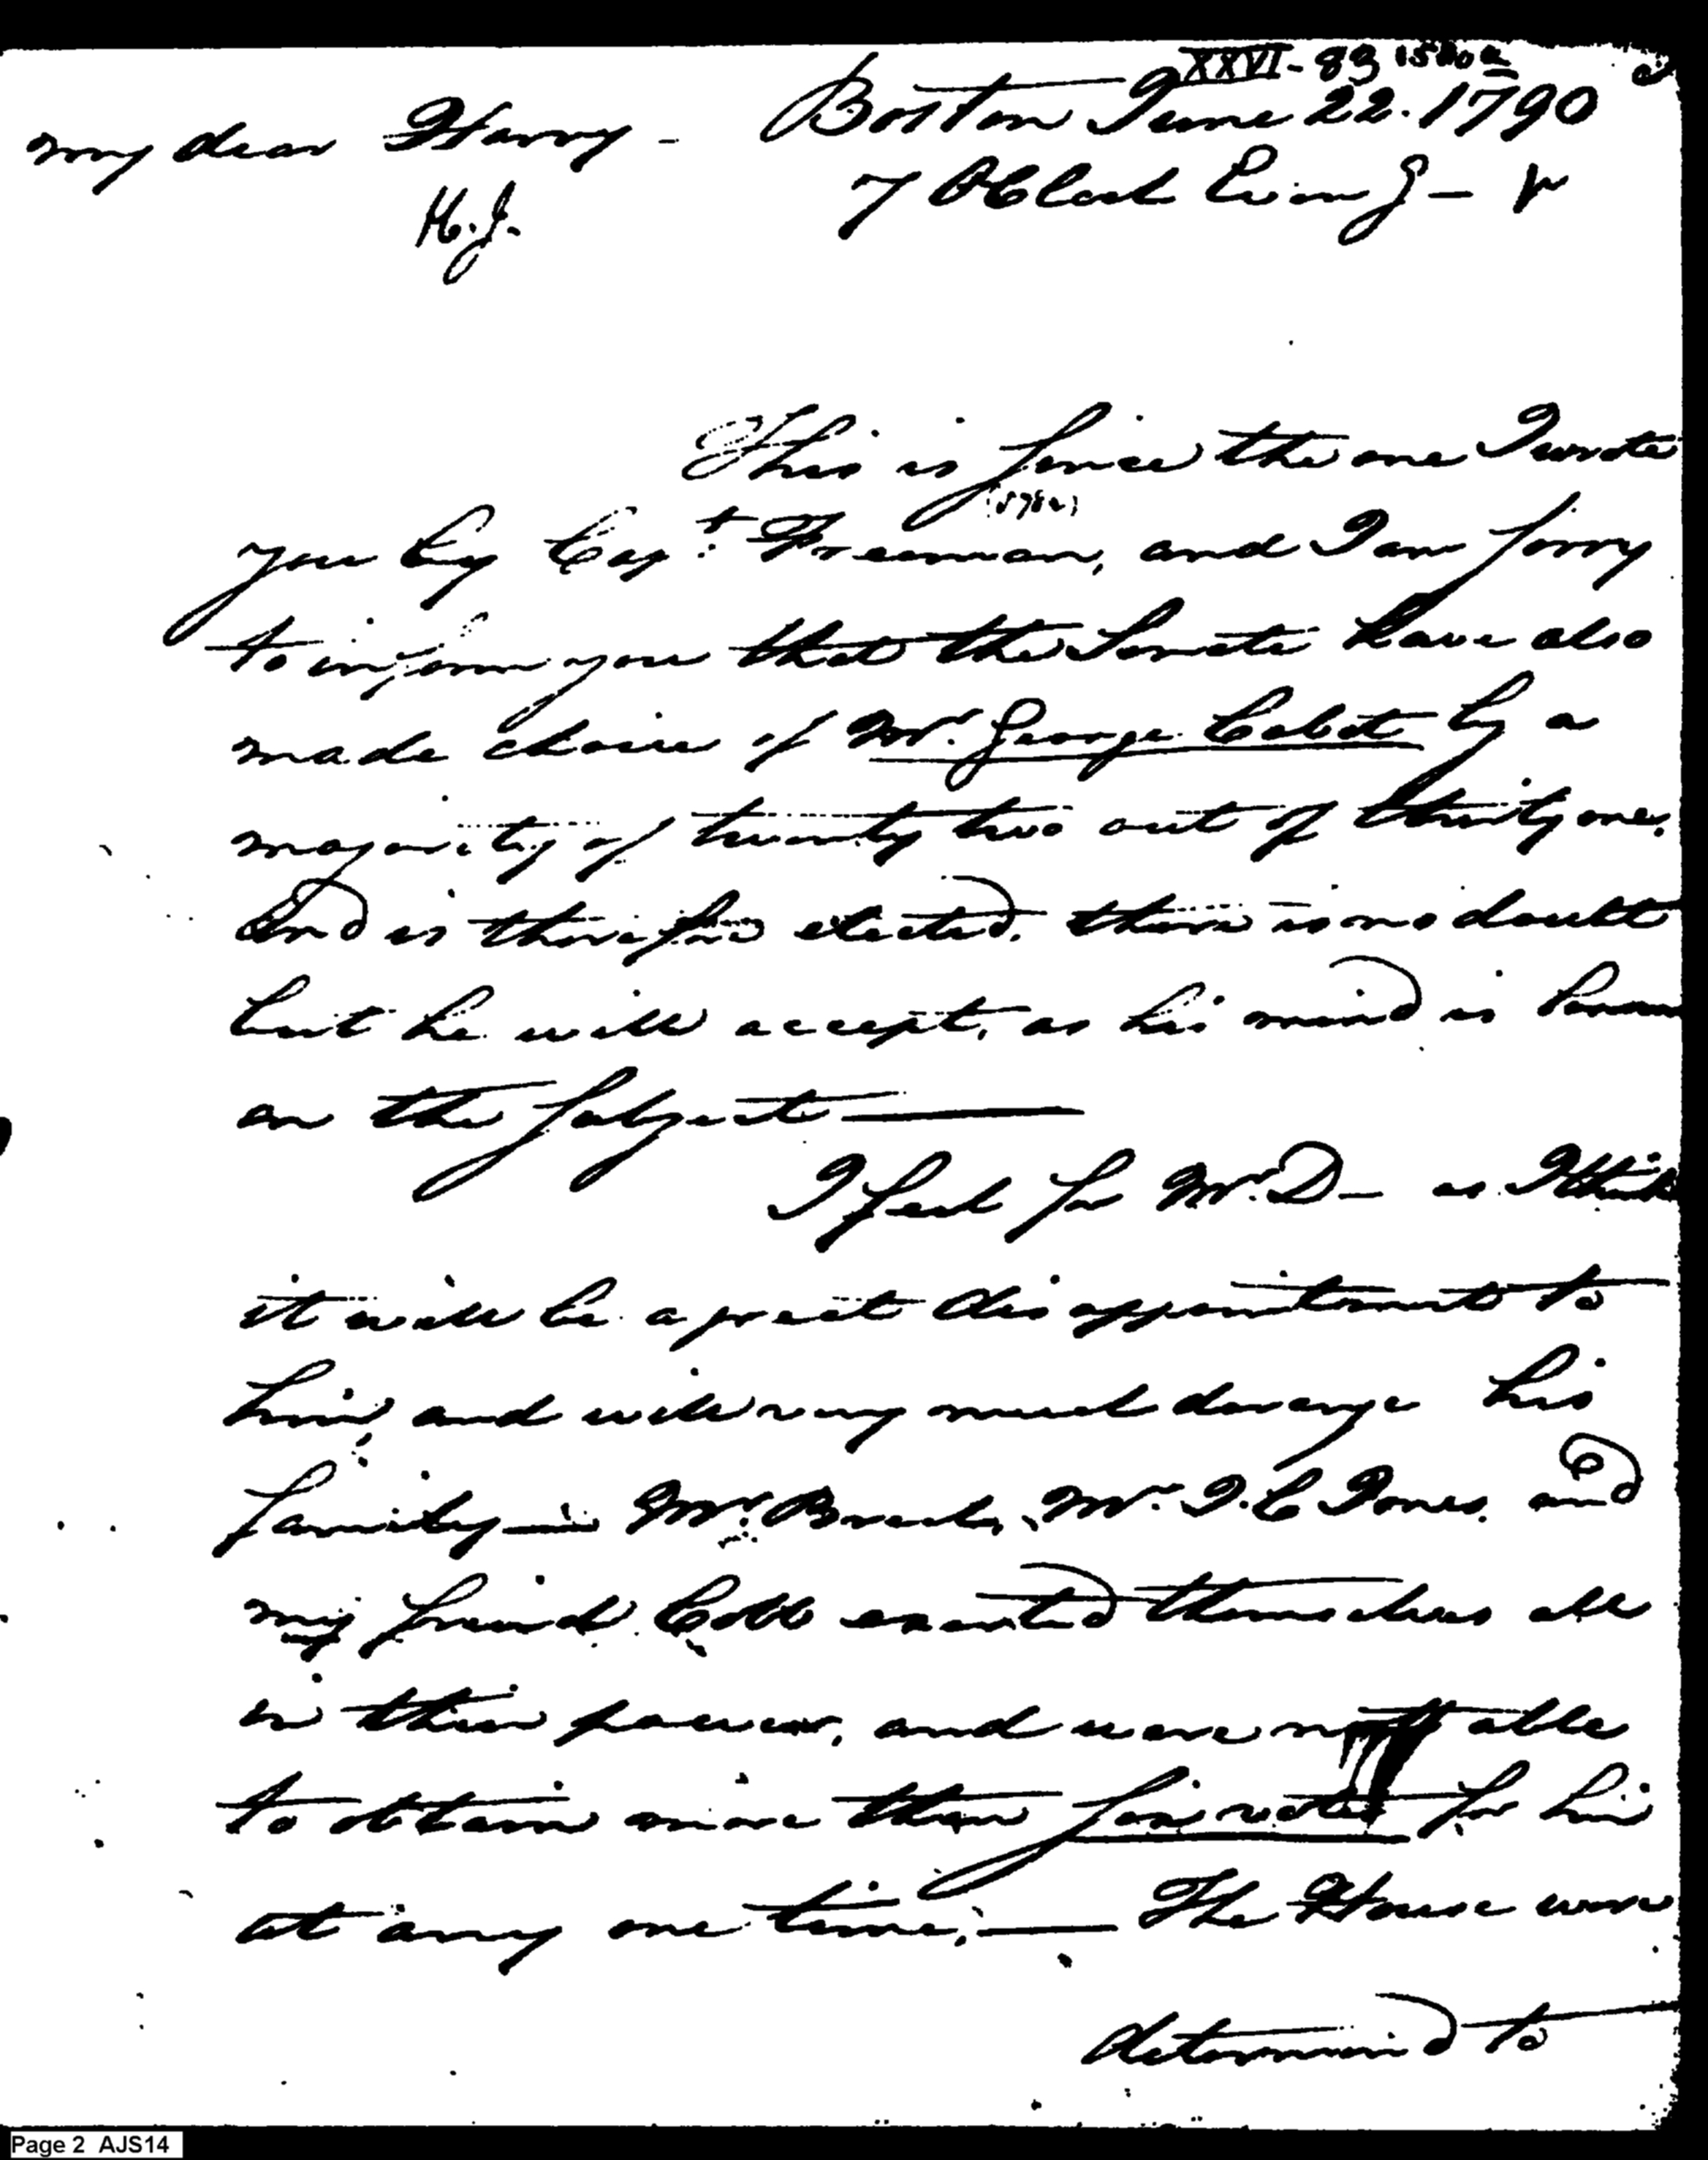 XXVI-83
Boston June 22. 1790
my dear Harry -
7 OClock Eveng -
H. J.
This is since the one I wrote
you by Cap.t Freeman, and I am sorry
to inform you that the Senate have also
made choice of Mr. George Cabot by a
majority of twenty two out of thirty one,
And is therefore elected. there is no doubt
but he will accept, as his mind is known
on the subject
I feel for Mr. D— as I think
it will be a great disappointment to
him, and will very much derange his
family — Mr. Breck, Mr. J. C Jones, and
my friend Cobb exerted themselves all
in their power, and were not able
to obtain more than votes for him
at any one time; — The House were
determined to
Page 2 AJS14